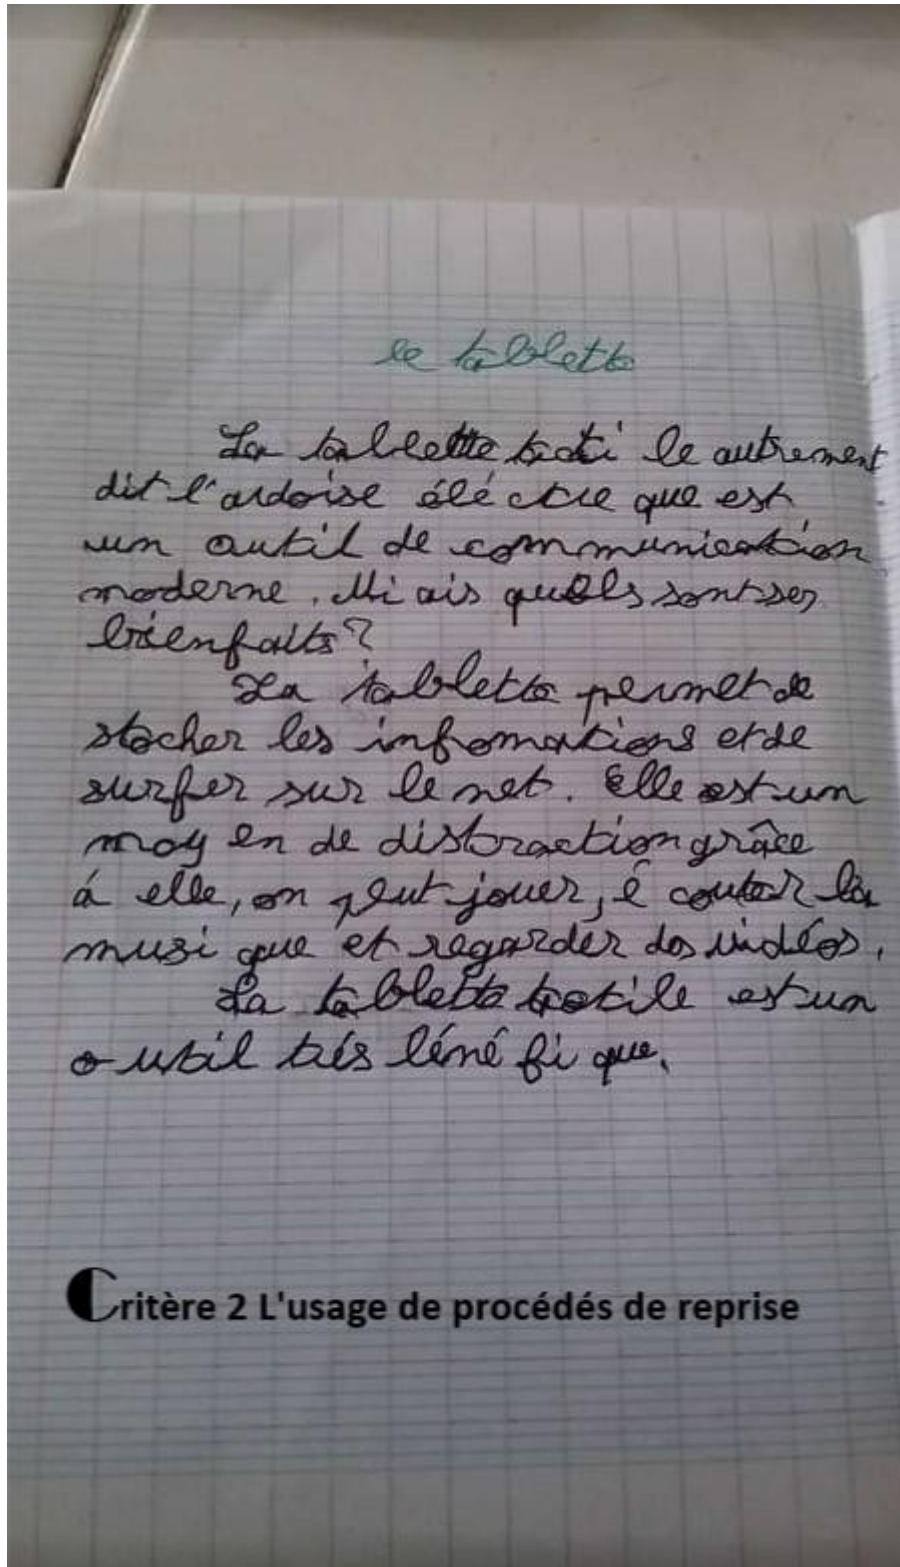 le tablette
La tablette tacti le autrement
dit l'ardoise éléctre que est
un outil de communication
moderne. Mi ais quels sont ses
biénfaits?
La tablette permet de
stocher les infromations et de
surfer sur le net. Elle est un
moy en de distraction grâce
á elle, on peut jouer, é couter la
musi que et regarder des vidéos.
La tablette tactile est un
o util trés béné fi que.
Critère 2 L'usage de procédés de reprise